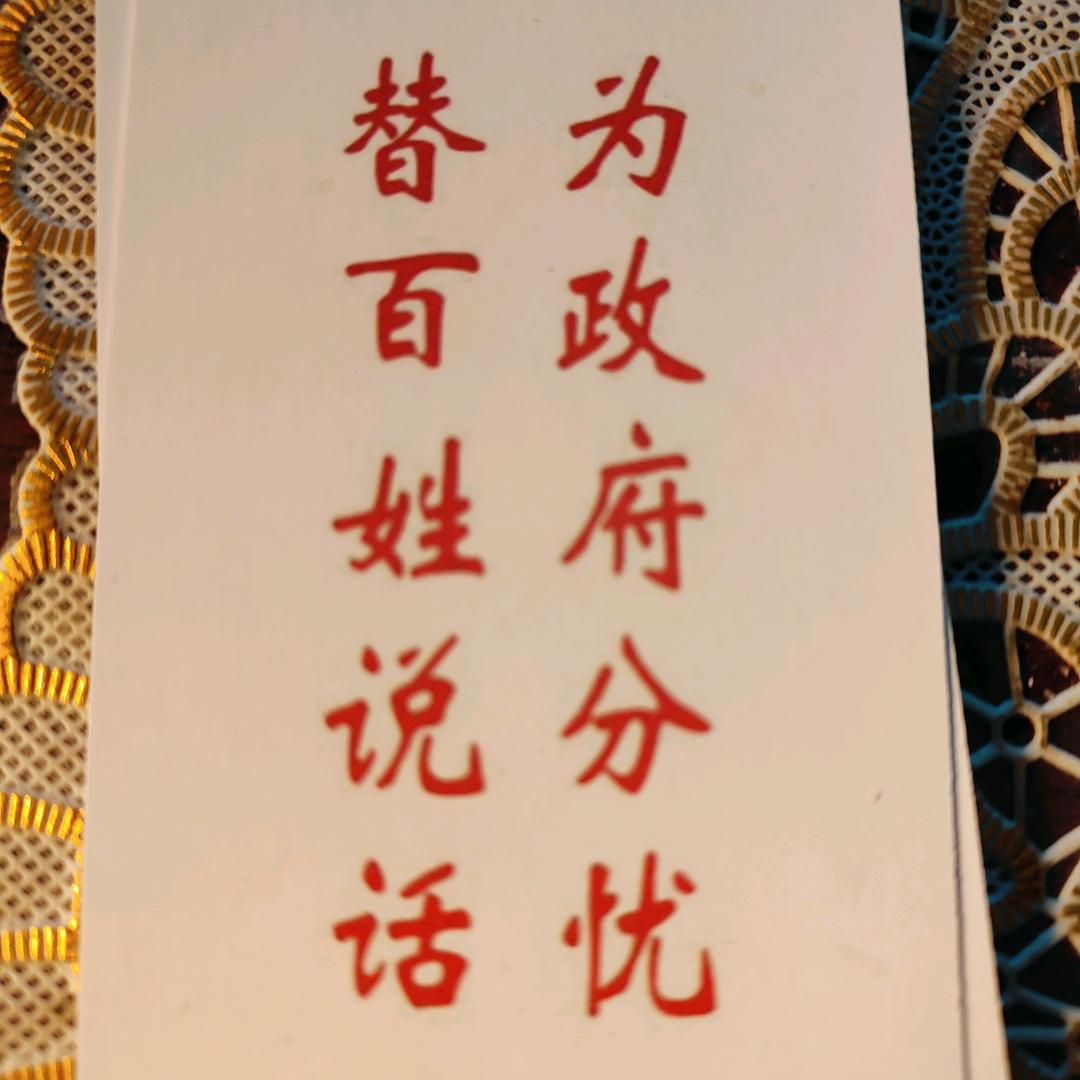 为政府分忧
替百姓说话